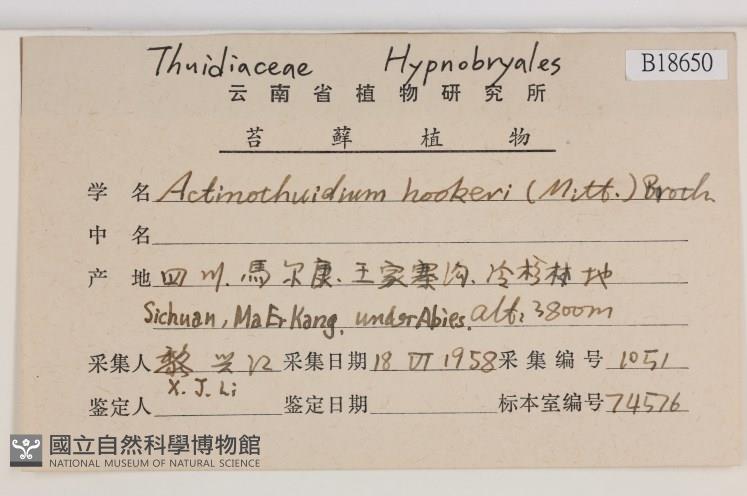 Thuidiaceae Hypnobryales
B18650
云南省植物研究所
苔藓植物
学名 Actinothuidium hookeri (Mitt.) Broth.
中名
产地 四川.馬尔康.王家寨沟.冷杉林地
Sichuan, MaErKang, under Abies. alt. 3800m
采集人 黎兴江 采集日期 18 VI 1958 采集编号 1051
X. J. Li
鉴定人 鉴定日期 标本室编号 74576
國立自然科學博物館
NATIONAL MUSEUM OF NATURAL SCIENCE